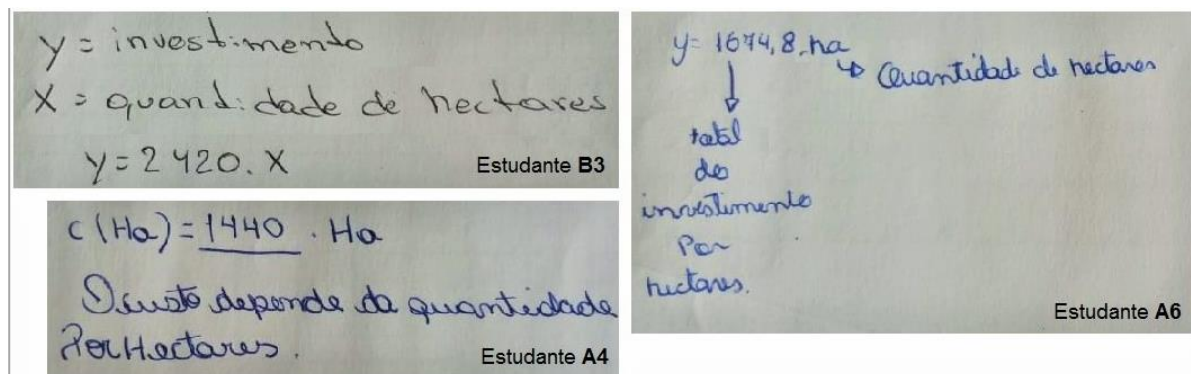 y = investimento
X = quantidade de hectares
y = 2420. X
Estudante B3
C (Ha) = 1440 . Ha
O custo depende da quantidade
Por Hectares.
Estudante A4
y = 1674,8. ha
↳ Quantidade de hectares
total
do
investimento
Por
hectares.
Estudante A6